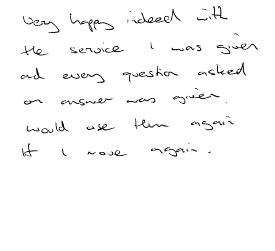 Very happy indeed with
the service I was given
and every question asked
an answer was given.
Would use them again
If I move again.